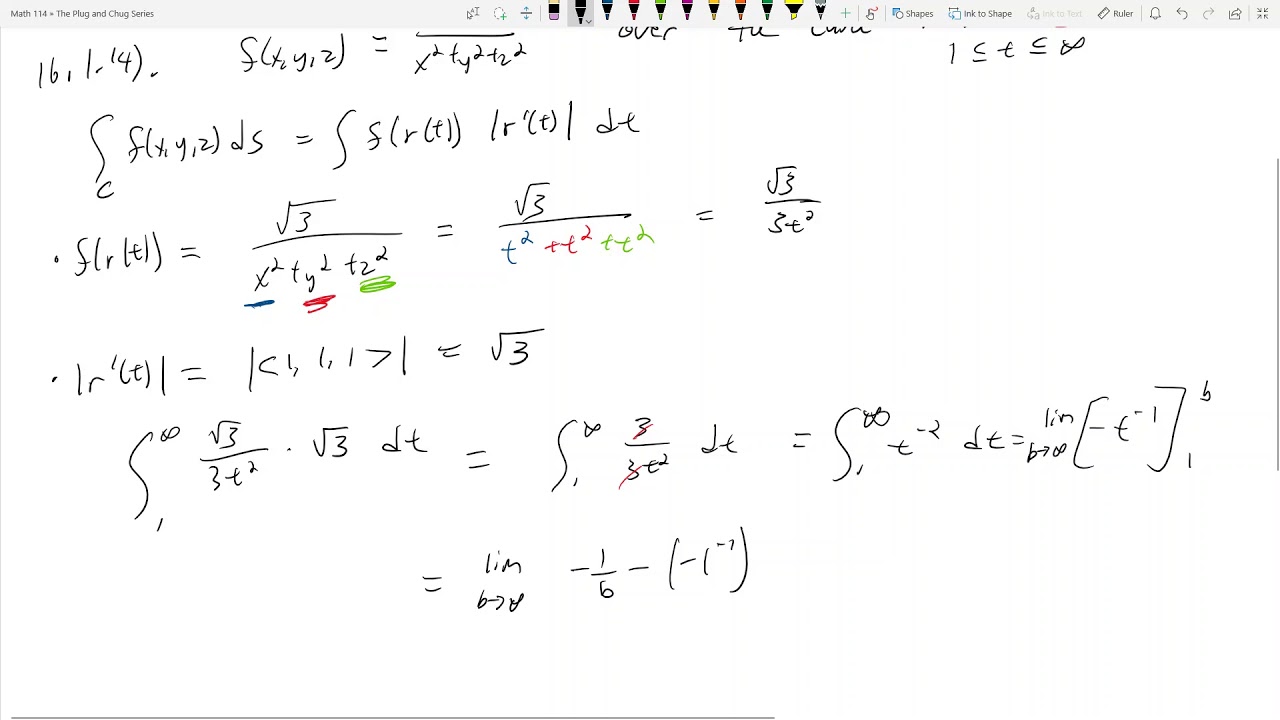 Math 114 » The Plug and Chug Series
Shapes Ink to Shape Ink to Text Ruler
16.1.14). f(x,y,z) = / x²+y²+z² over the
1 ≤ t ≤ ∞
∫_C f(x,y,z) ds = ∫ f(r(t)) |r'(t)| dt
· f(r(t)) = √3 / (x²+y²+z²) = √3 / (t²+t²+t²) = √3 / 3t²
· |r'(t)| = |<1, 1, 1>| = √3
∫₁^∞ √3/3t² · √3 dt = ∫₁^∞ 3/3t² dt = ∫₁^∞ t⁻² dt = lim b→∞ [-t⁻¹]₁^b
= lim b→∞ -1/b - (-1⁻¹)